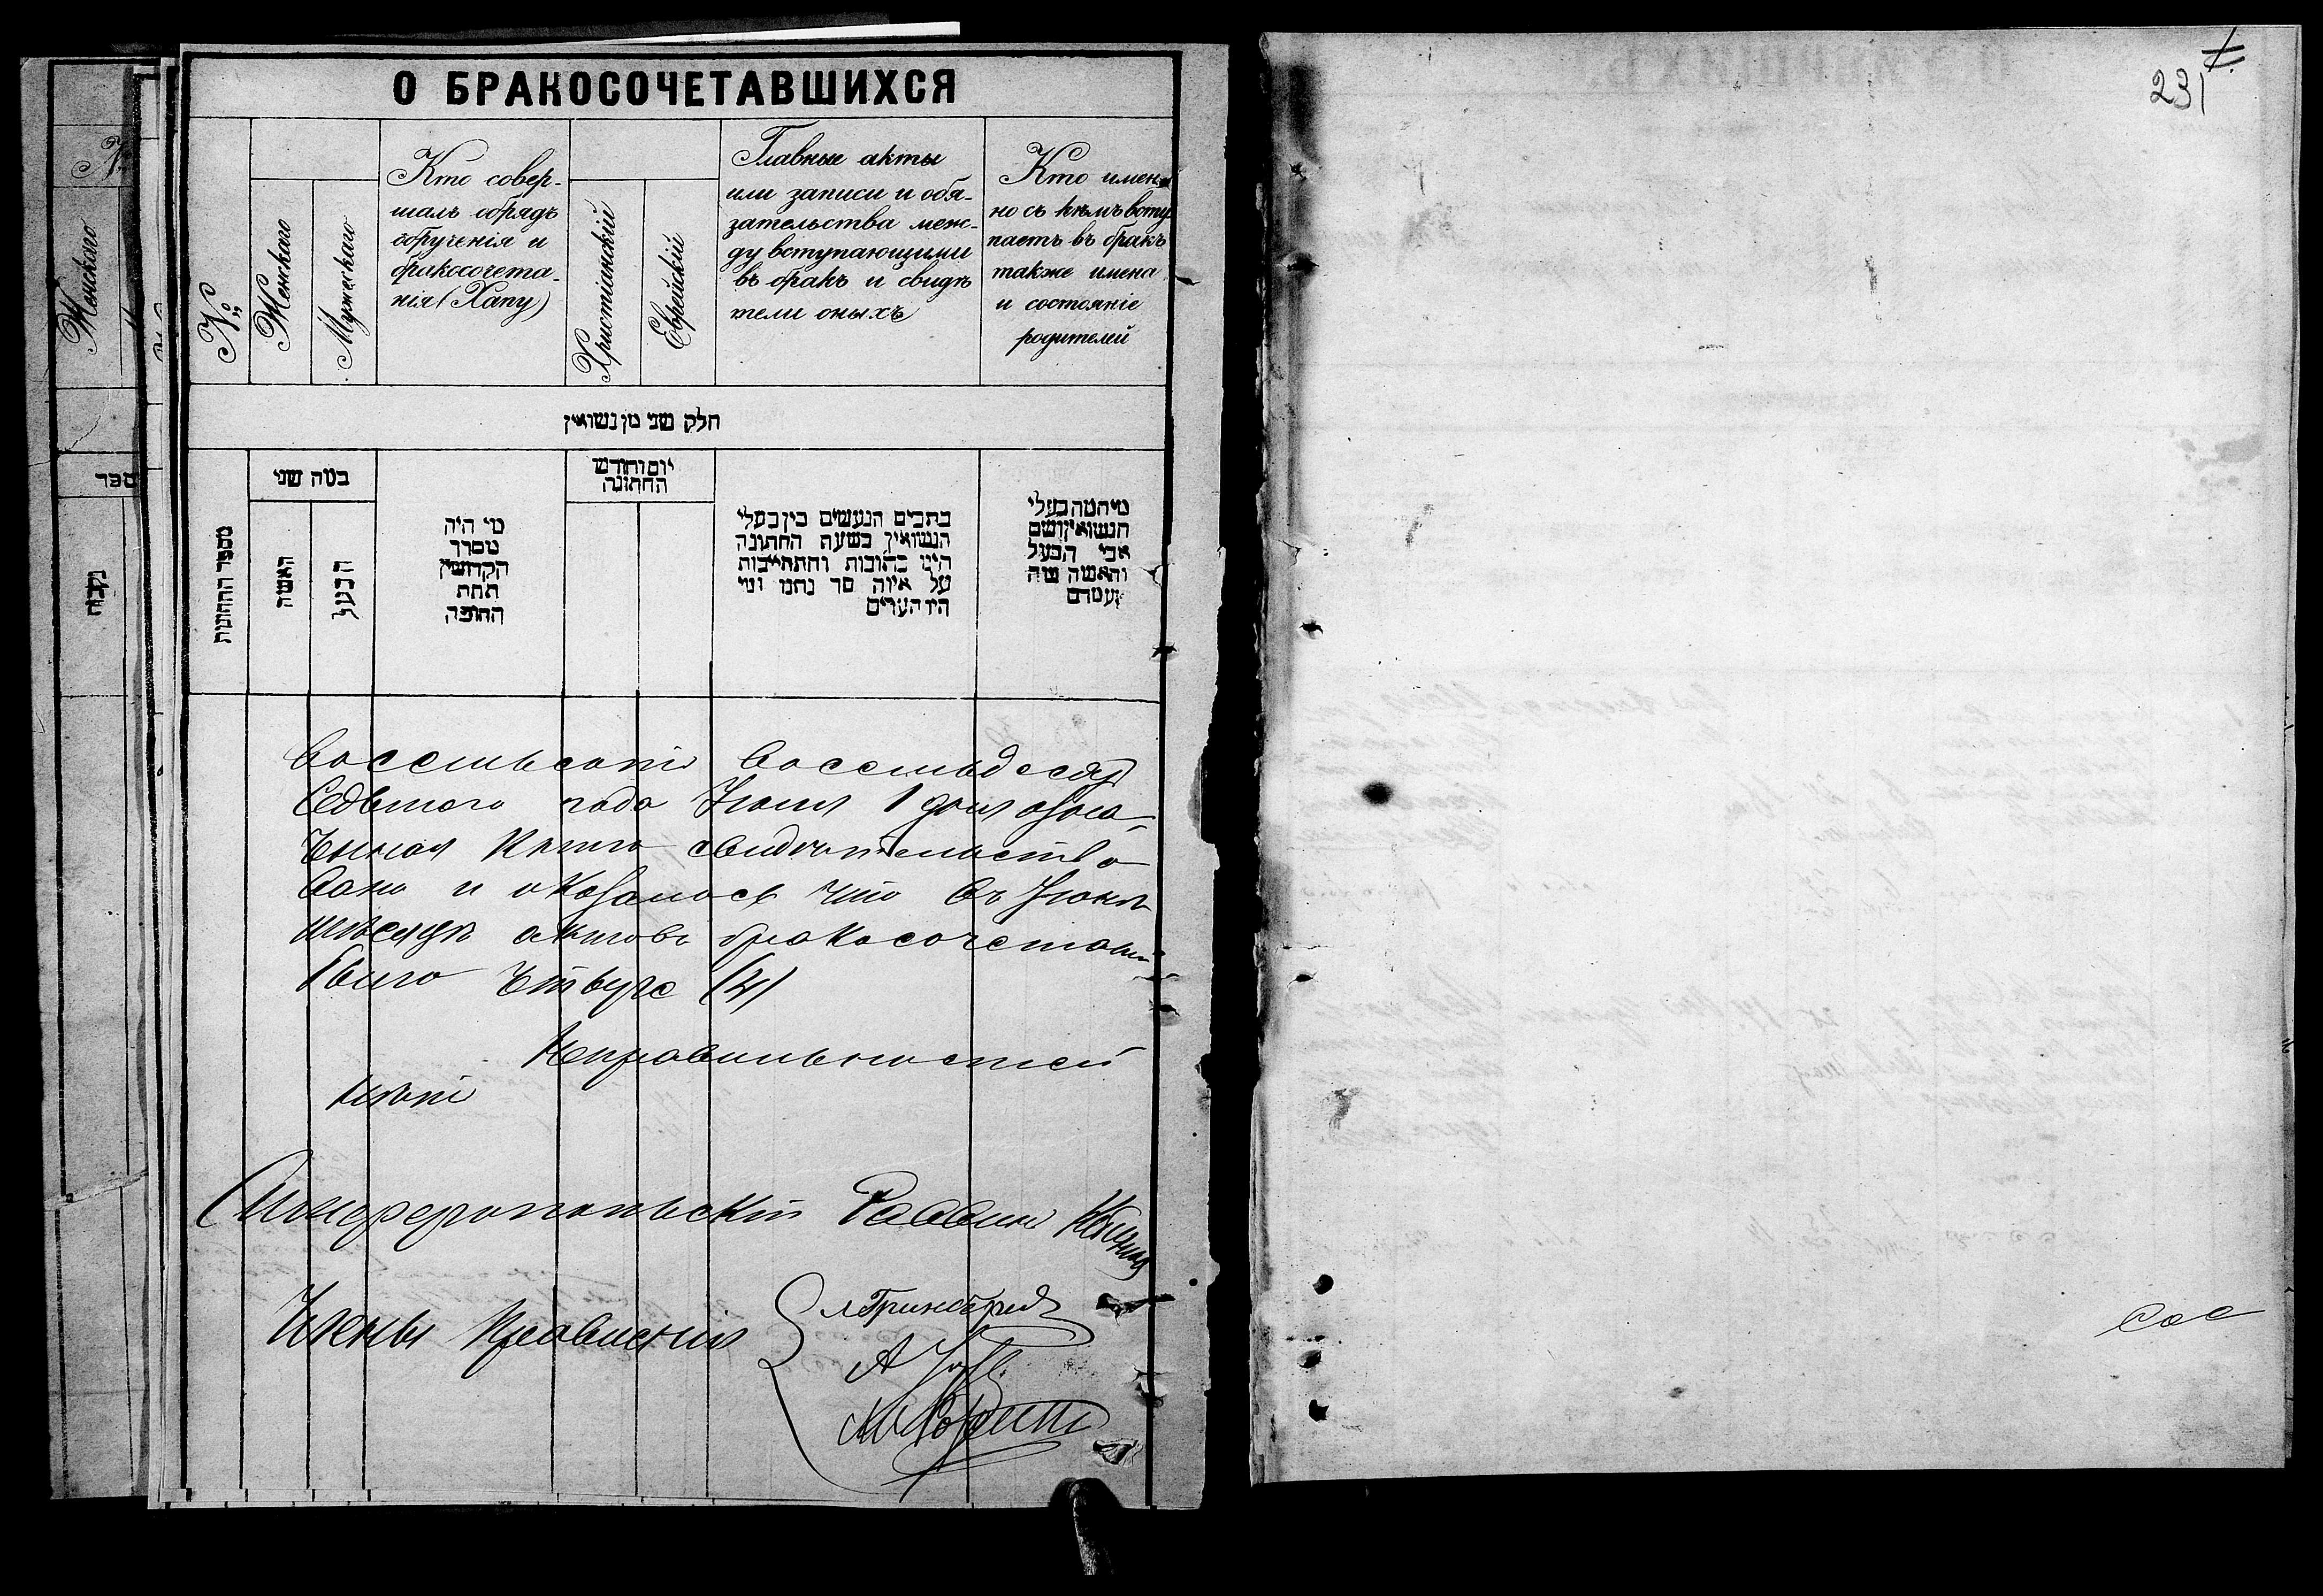 О БРАКОСОЧЕТАВШИХСЯ
№
Женскаго
Мужескаго
Кто совер-
шалъ обрядъ
обрученія и
бракосочета-
нія (Хапу)
Христіанскій
Еврейскій
Главные акты
или записи и обя-
зательства меж-
ду вступающими
въ бракъ и свидѣ
тели оныхъ
Кто имен-
но съ кѣмъ всту
паетъ въ бракъ
также имена
и состояніе
родителей
חלק שני מן נשואין
מספר החתונות
כמה שני
האשה
הבעל
מי היה
מסדר
הקדושין
תחת
החופה
יום וחודש
החתונה
כתבים הנעשים בין בעלי
הנשואין בשעת החתונה
היינו כתובות והתחייבות
על איזה סך נתנו ומי
היו העדים
מי המה בעלי
הנשואין ושם
אבי הבעל
והאשה מה
מעמדם
Женскаго
ספר
נקבות
восемьсотъ восемьдесят
седьмого года Іюля 1 дня озна-
ченная книга свидѣтельство
вана и оказалось что въ Іюнѣ
мѣсяцѣ актовъ бракосочетаній
было четыре (4)
Неправильностей
нѣтъ
Симферопольскій Раввинъ
Члены Правленія
231